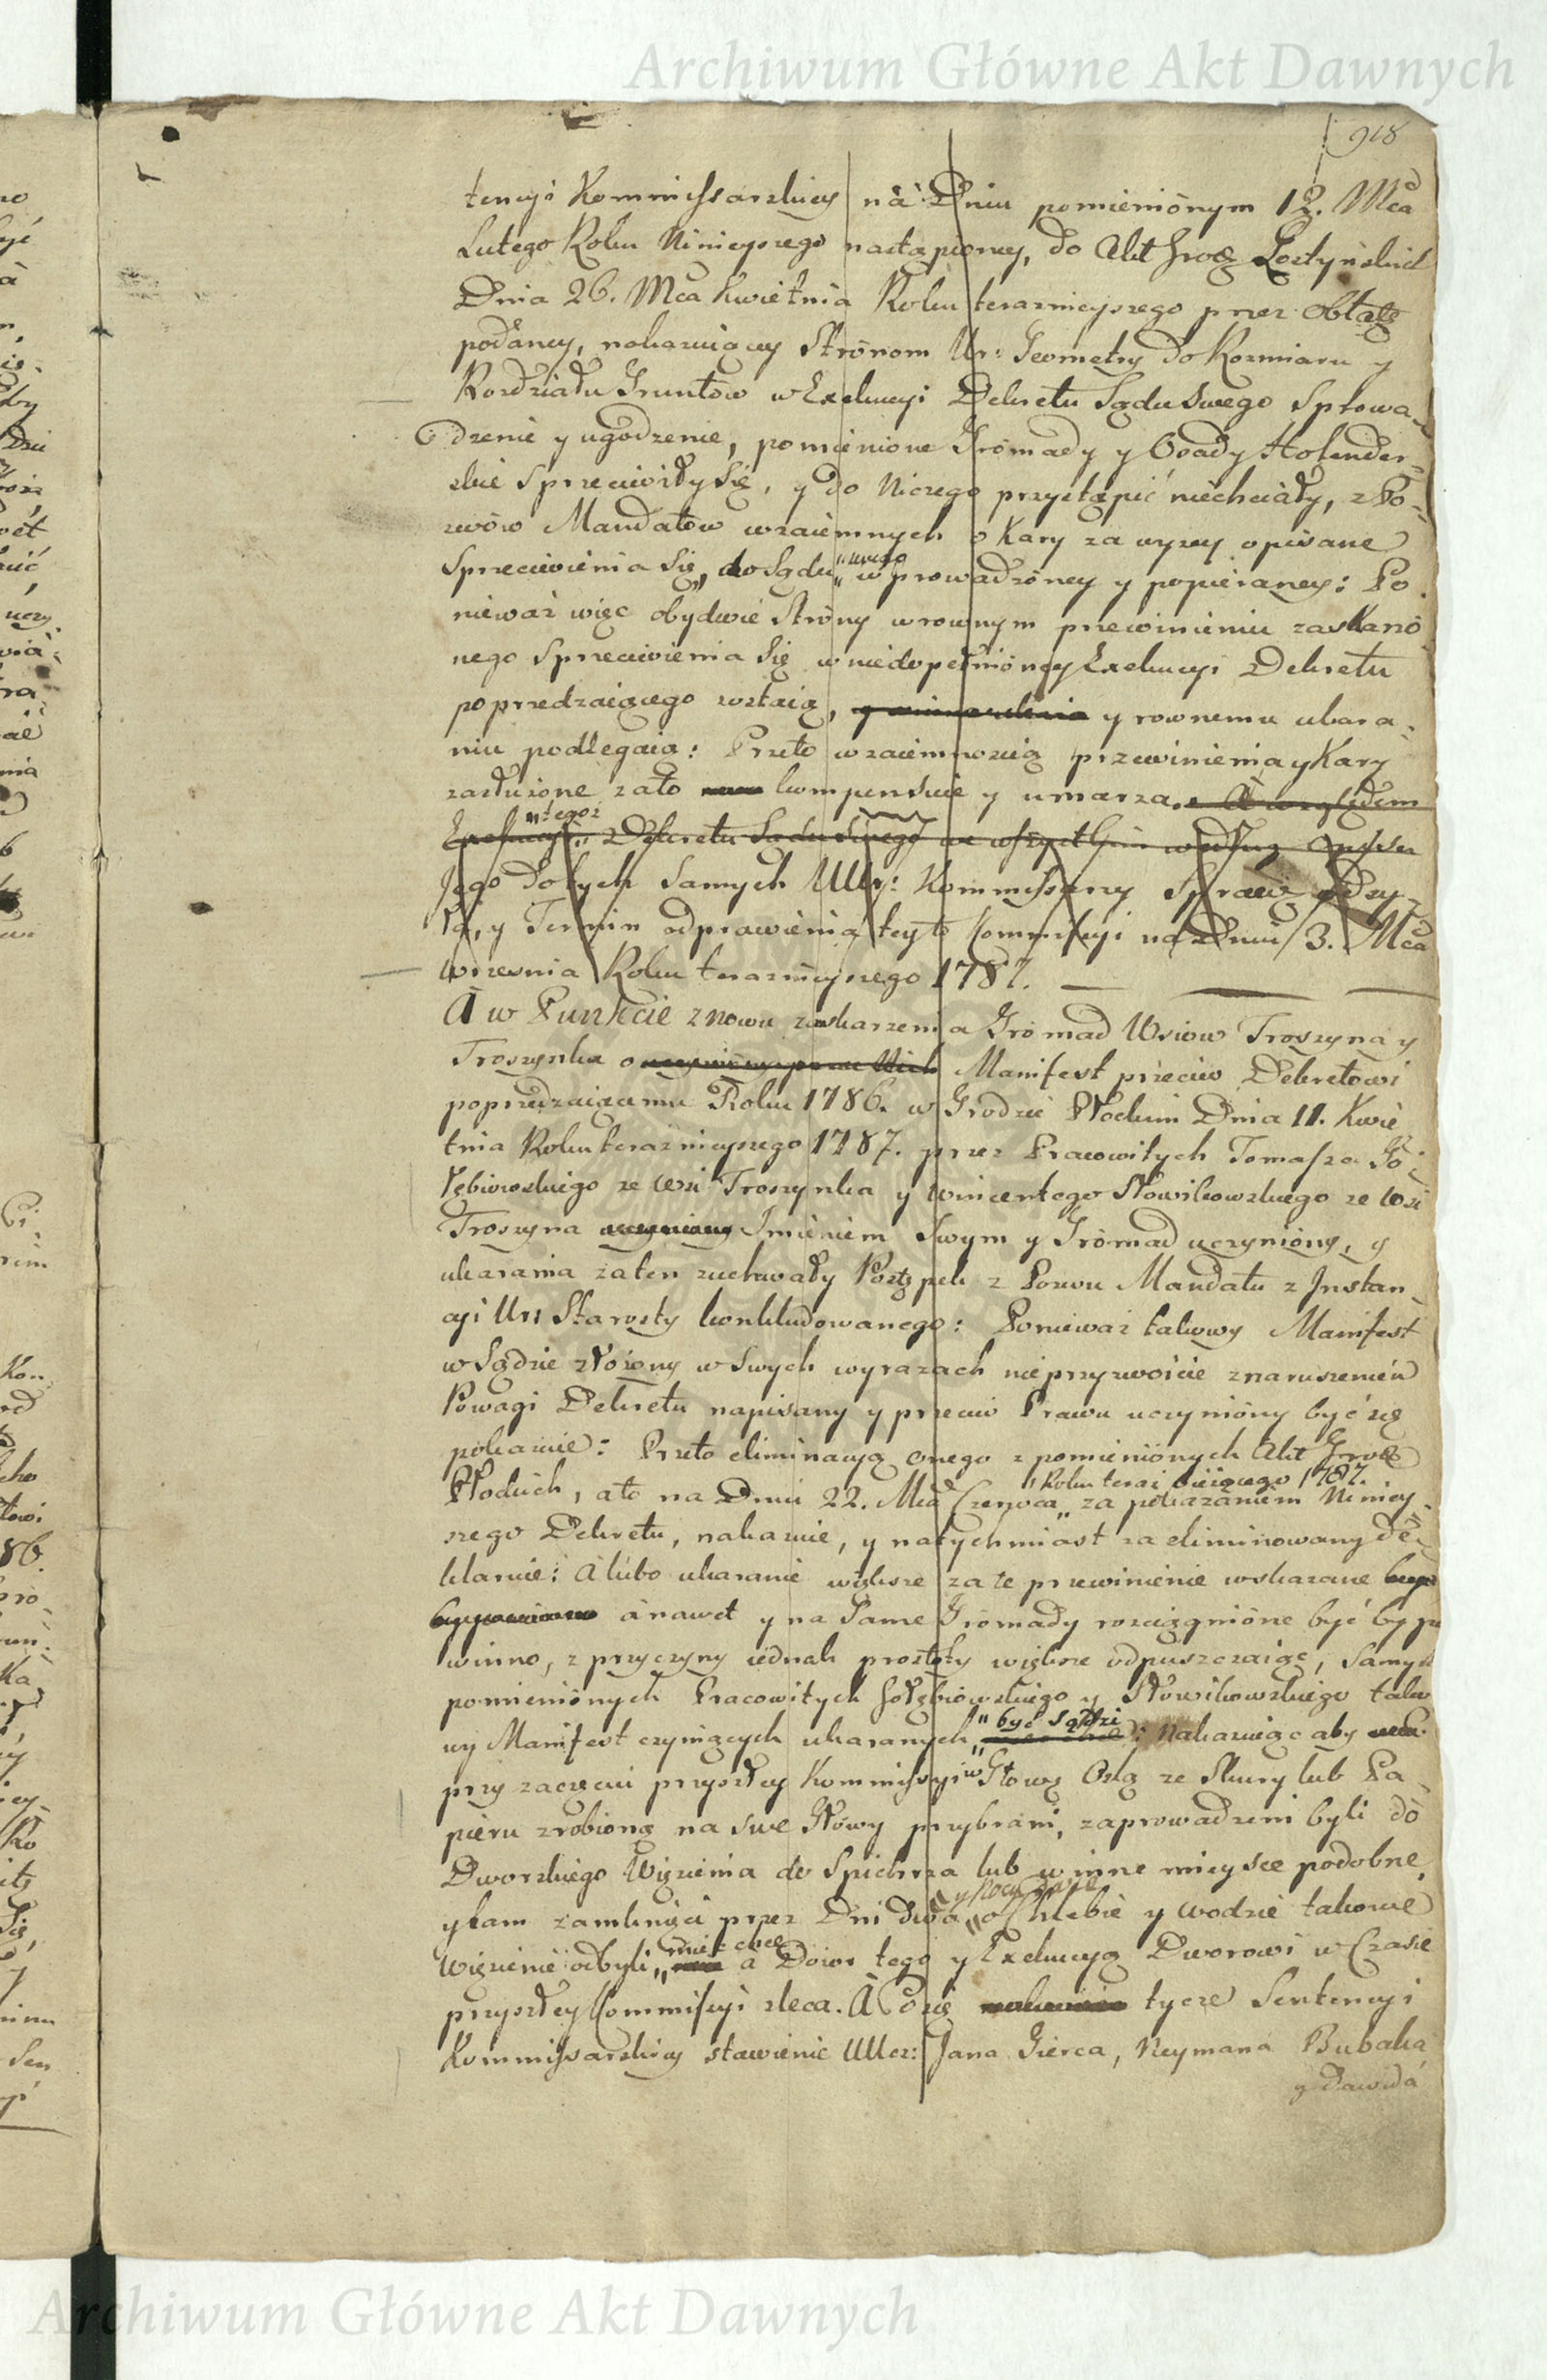 Archiwum Główne Akt Dawnych
918
tencyi Kommissarskiey na Dniu pomienionym 12. Mca
Lutego Roku Ninieyszego nastąpioney, do Akt Grodz Gostyńskich
Dnia 26. Mca Kwietnia Roku teraznieyszego przez Oblatę
podaney, nakazuiącey Stronom Ur: Geometry do Rozmiaru y
Rozdziału Gruntow w Exekucyi Dekretu Sądu Swego Sprowa-
dzenie y ugodzenie, pomienione Gromady y Osady Holender-
skie Sprzeciwiły Się, y do Niczego przystąpić niechciały, z Po-
zwow Mandatow wzaiemnych o Kary za wyzey opisane
Sprzeciwienia Się, do Sądu swego wprowadzoney y popieraney: Po
nieważ więc obydwie Strony w rownym przewinieniu zaskarzo
nego Sprzeciwienia Się w niedopełnioney Exekucyi Dekretu
poprzedzaiącego zostaią, y rownemu ukara-
niu podlegaią: Przeto wzaiemnoscią przewinienia y Kary
zasłużone zato kompensuie y umarza. A względem
Exekucyi tegoż Dekretu Sądu Swego we wszystkim według Opisu
Jego do tych Samych UUr: Kommissarzy Sprawę Odsy-
ła, y Termin odprawienia teyto Kommissyi na Dniu 3. Mca
Wrzesnia Roku teraznieyszego 1787.
A w Punkcie znowu zaskarzenia Gromad Wsiow Troszyna y
Troszynka o Manifest przeciw Dekretowi
poprzedzaiącemu Roku 1786. w Grodzie Płockim Dnia 11. Kwie
tnia Roku teraznieyszego 1787. przez Pracowitych Tomasza Go-
łębiowskiego ze Wsi Troszynka y Wincentego Słowikowskiego ze Wsi
Troszyna uczyniony Imieniem Swym y Gromad uczyniony, y
ukarania zaten zuchwały Postępek z Pozwu Mandatu z Instan-
cyi Ur: Starosty konkludowanego: Ponieważ takowy Manifest
w Sądzie złożony w Swych wyrazach nieprzyzwoicie z naruszeniem
Powagi Dekretu napisany y przeciw Prawu uczyniony być się
pokazuie: Przeto eliminacyą onego z pomienionych Akt Grodz
Płockich, a to na Dniu 22. Mca Czerwca Roku teraz bieżącego 1787. za pokazaniem Niniey-
szego Dekretu, nakazuie, y natychmiast za eliminowany de-
klaruie: A lubo ukaranie większe za te przewinienie wskazane
a nawet y na Same Gromady rozciągnione być by po
winno, z przyczyny iednak prostoty większe odpuszczaiąc, Samych
pomienionych Pracowitych Gołębiowskiego y Słowikowskiego tako
wy Manifest czyniących ukaranych być sądzi: Nakazuiąc aby
przy zaczęciu przyszłey Kommissyi w Głowę Oslą ze Skury lub Pa-
pieru zrobioną na swe Głowy przybrani, zaprowadzeni byli do
Dworskiego Więzienia do Spichrza lub w inne mieysce podobne,
y tam zamknięci przez Dni dwa o Chlebie y Wodzie takowe
Więzienie odbyli, mieć chce a Dozor tego y Exekucyą Dworowi w Czasie
przyszłey Kommissyi zleca. A Co się tycze Sentencyi
Kommissarskiey stawienie UUcz: Jana Gierca, Neymana Bubaka
y Dawida
Archiwum Główne Akt Dawnych